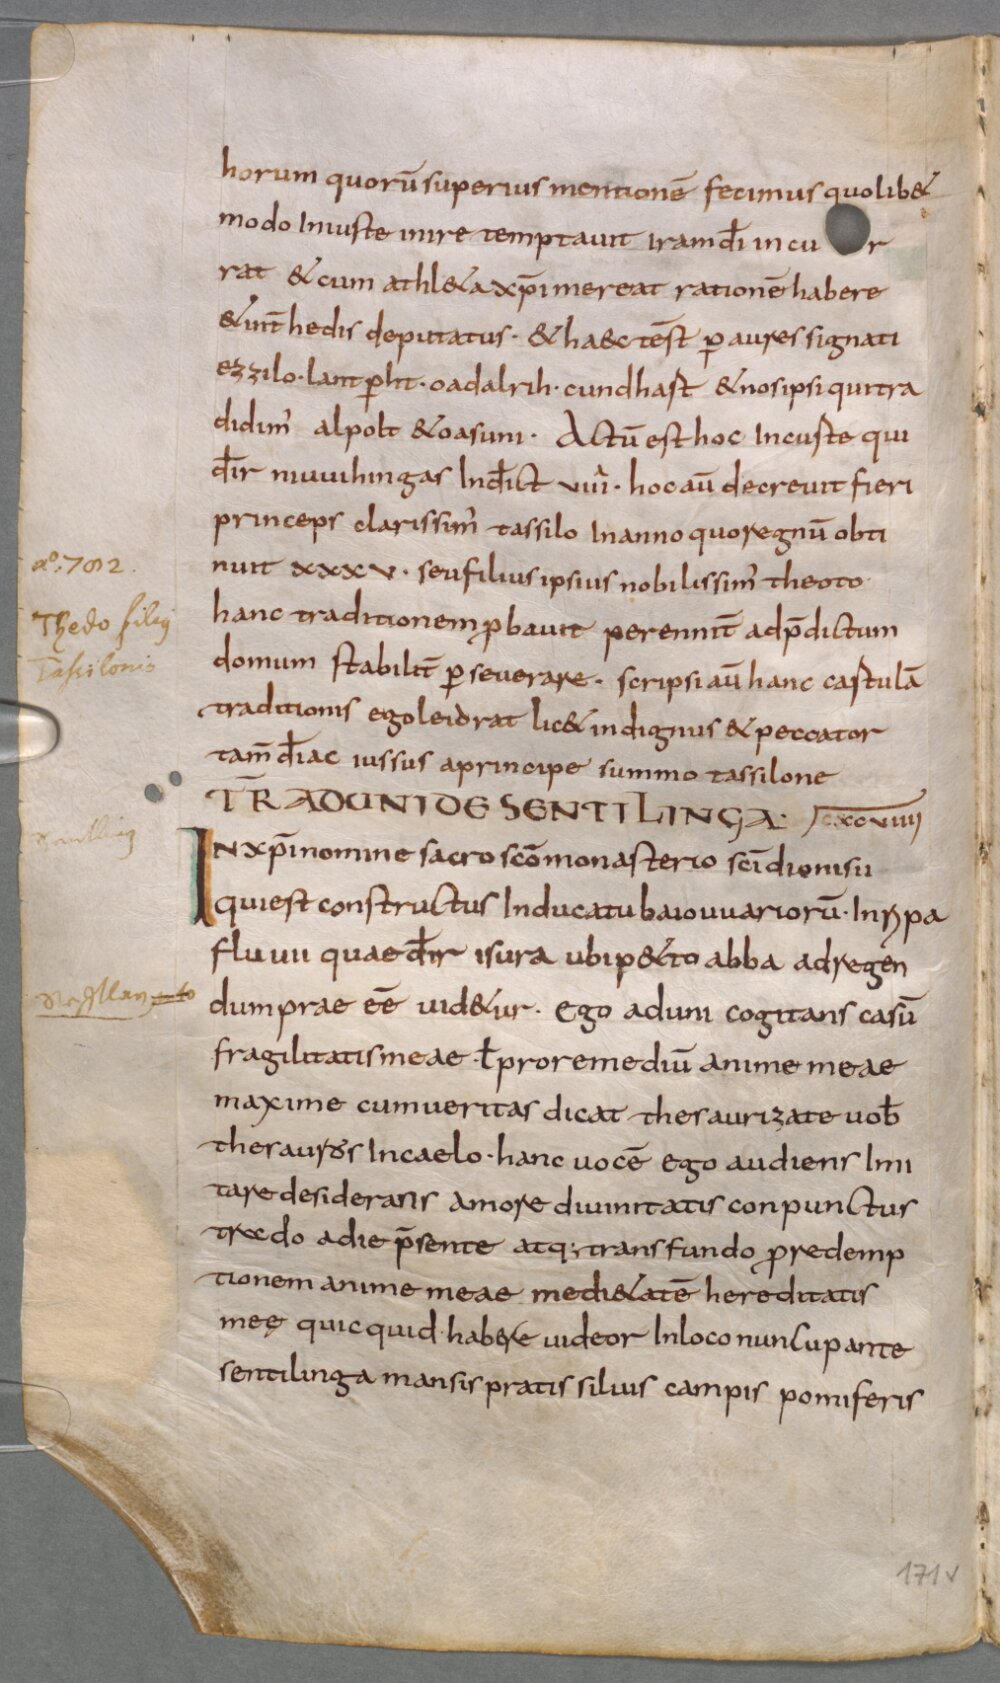 horum quorū superius mentionē fecimus quolib&
modo Iniuste inire temptauit iram dī in cu r
rat & cum athl&a xp̄i mereat rationē habere
a͞o. 782.
& int̄ hedis deputatus · & haec tēst̄ ꝑ aures signati
ezzilo · lantꝑht · oadalrih · cundhast & nos ipsi qui tra
didim̄ alpolt & oasuni · Actū est hoc In custe qui
dr̄ niuuihingas Indict̄ viiii · hoc aū decreuit fieri
princeps clarissim̄ tassilo In anno quo regnū obti
nuit xxxv · seu filius ipsius nobilissim̄ theoto
Thedo filiꝰ
Tassilonis
hanc traditionem ꝓbauit perennit̄ ad p̄dictum
domum stabilit̄ ꝑseuerare · scripsi aū hanc castulā
traditionis ego leidrat lic& indignus & peccator
tam̄ diac̄ iussus a principe summo tassilone
TRAD UNI DE SENTILINGA · cxcviiii
IN xp̄i nomine sacro scō monasterio sc̄i dionisii
qui est constructus In ducatu baiouuariorū · In ripa
fluuii quae dr̄ isura ubi p&to abba ad regen
dum prae eē uid&ur · Ego aduni cogitans casū
fragilitatis meae ƚ pro remediū anime meae
maxime cum ueritas dicat thesaurizate uob̄
thesauros In caelo · hanc uocē ego audiens Imi
tare desiderans amore diuinitatis conpunctus
trado a die p̄sente atq; transfundo ꝓ redemp
tionem anime meae medi&atē hereditatis
meę quicquid habere uideor In loco nuncupante
sentilinga mansis pratis siluis campis pomiferis
171v